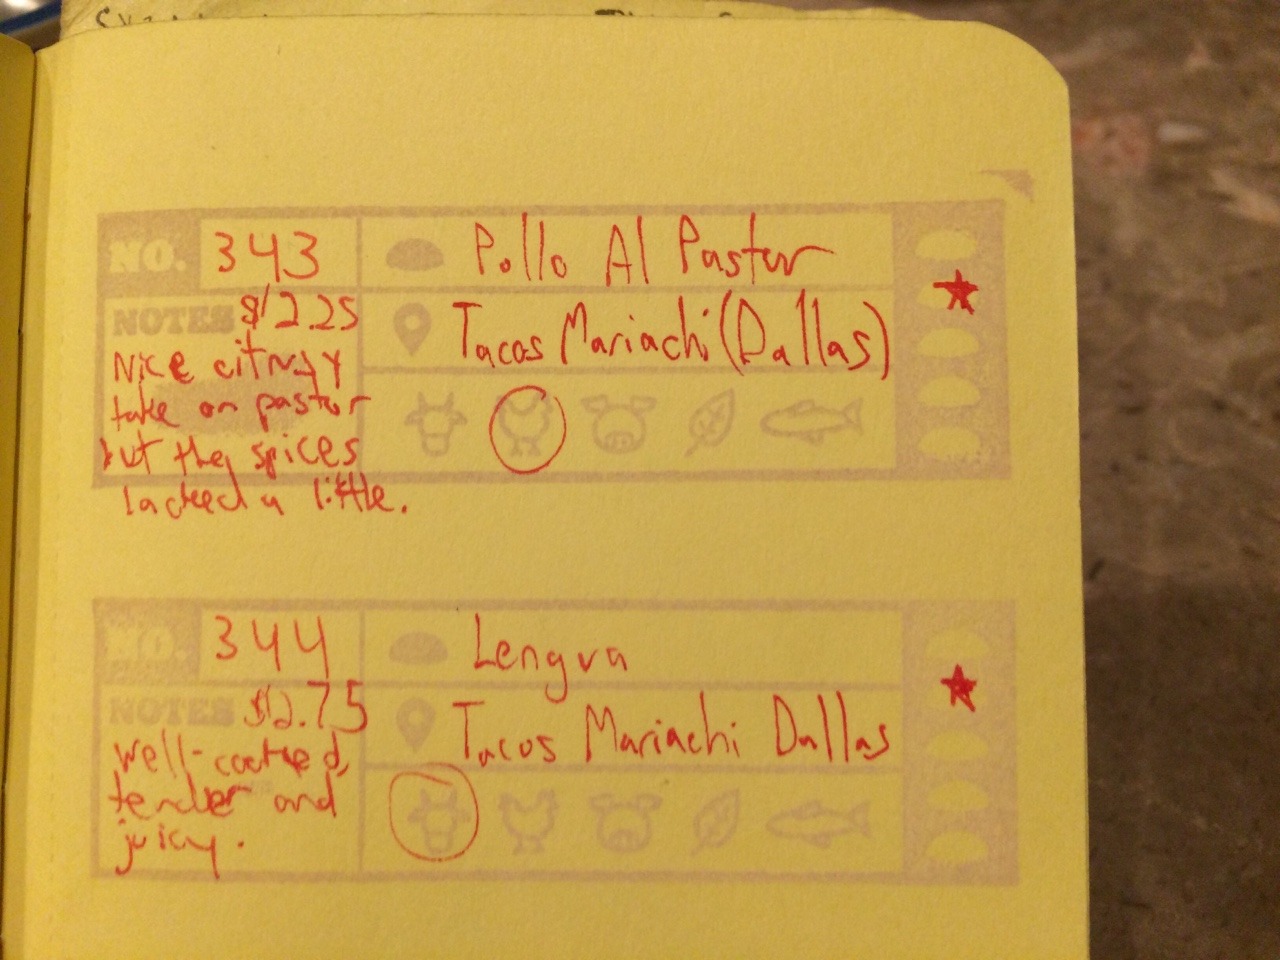 NO. 343
Pollo Al Pastor
NOTES $2.25
Tacos Mariachi (Dallas)
Nice citrusy
take on pastor
but the spices
lacked a little.
NO. 344
Lengua
NOTES $2.75
Tacos Mariachi Dallas
Well-cooked,
tender and
juicy.